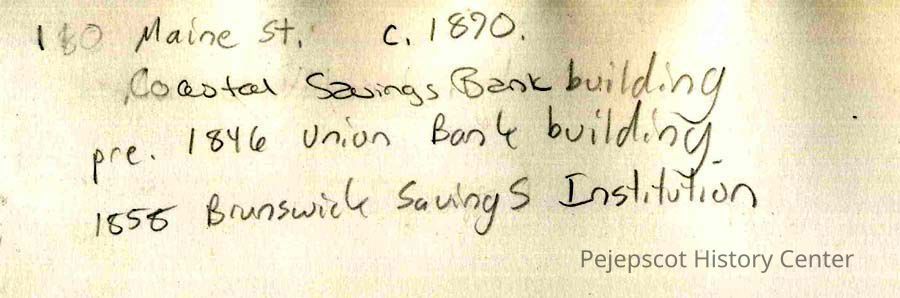 180 Maine St. c. 1890.
Coastal Savings Bank building
pre. 1846 Union Bank building
1858 Brunswick Savings Institution
Pejepscot History Center